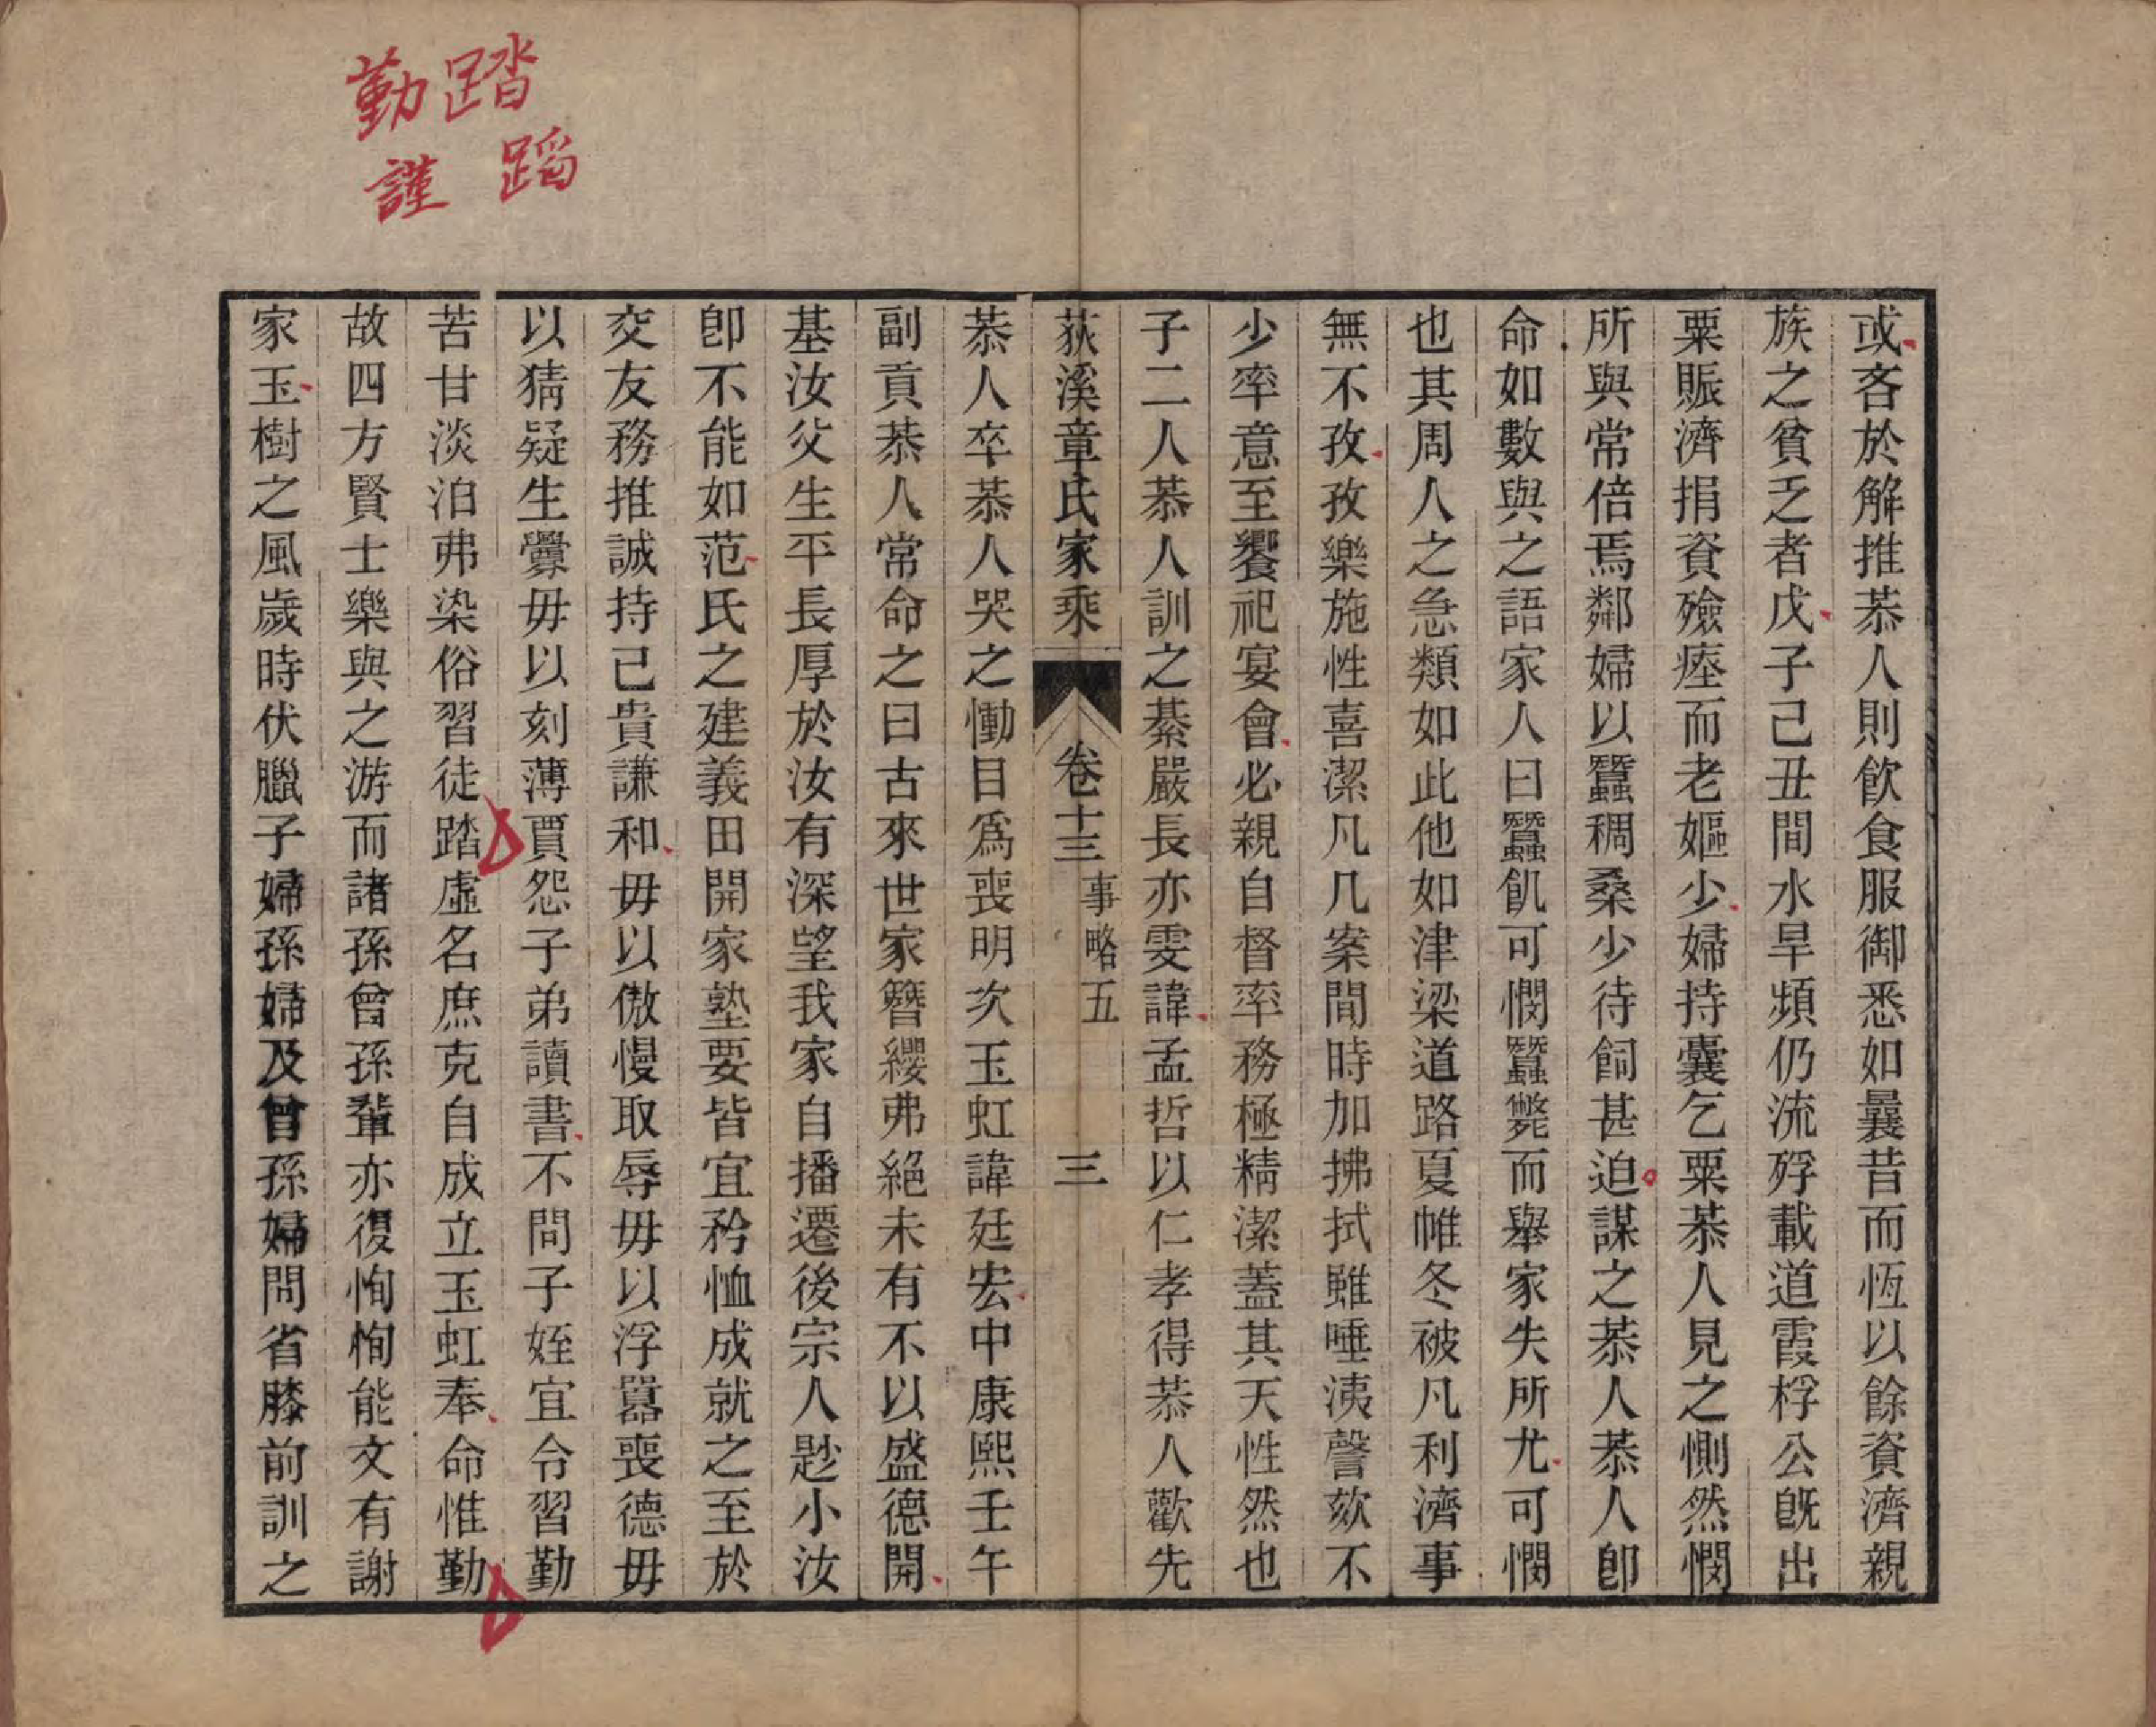 踏 蹈
勤 謹
或吝於解推恭人則飲食服御悉如曩昔而恆以餘資濟親
族之貧乏者戊子己丑間水旱頻仍流殍載道霞桴公旣出
粟賑濟捐資殮瘞而老嫗少婦持囊乞粟恭人見之惻然憫
所與常倍焉鄰婦以蠶稠桑少待飼甚迫謀之恭人恭人卽
命如數與之語家人曰蠶飢可憫蠶斃而舉家失所尤可憫
也其周人之急類如此他如津梁道路夏帷冬被凡利濟事
無不孜孜樂施性喜潔凡几案間時加拂拭雖唾洟謦欬不
少率意至饗祀宴會必親自督率務極精潔蓋其天性然也
子二人恭人訓之綦嚴長亦雯諱孟哲以仁孝得恭人歡先
荻溪章氏家乘 卷十三 事略五 三
恭人卒恭人哭之慟目爲喪明次玉虹諱廷宏中康熙壬午
副貢恭人常命之曰古來世家簪纓弗絕未有不以盛德開
基汝父生平長厚於汝有深望我家自播遷後宗人尟小汝
卽不能如范氏之建義田開家塾要皆宜矜恤成就之至於
交友務推誠持己貴謙和毋以傲慢取辱毋以浮囂喪德毋
以猜疑生釁毋以刻薄賈怨子弟讀書不問子姪宜令習勤
苦甘淡泊弗染俗習徒踏虛名庶克自成立玉虹奉命惟勤
故四方賢士樂與之游而諸孫曾孫輩亦復恂恂能文有謝
家玉樹之風歲時伏臘子婦孫婦及曾孫婦問省膝前訓之